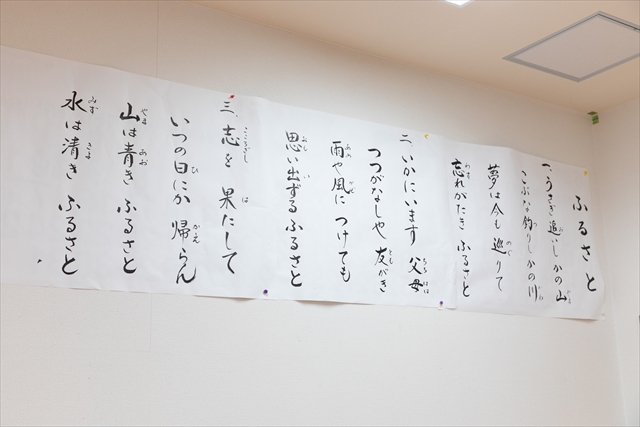 ふるさと
一、うさぎ追いしかの山
こぶな釣りしかの川
夢は今も 巡りて
忘れがたき ふるさと
二、いかにいます 父母
つつがなしや 友がき
雨や風に つけても
思い出ずる ふるさと
三、志を 果たして
いつの日にか 帰らん
山は青き ふるさと
水は清き ふるさと